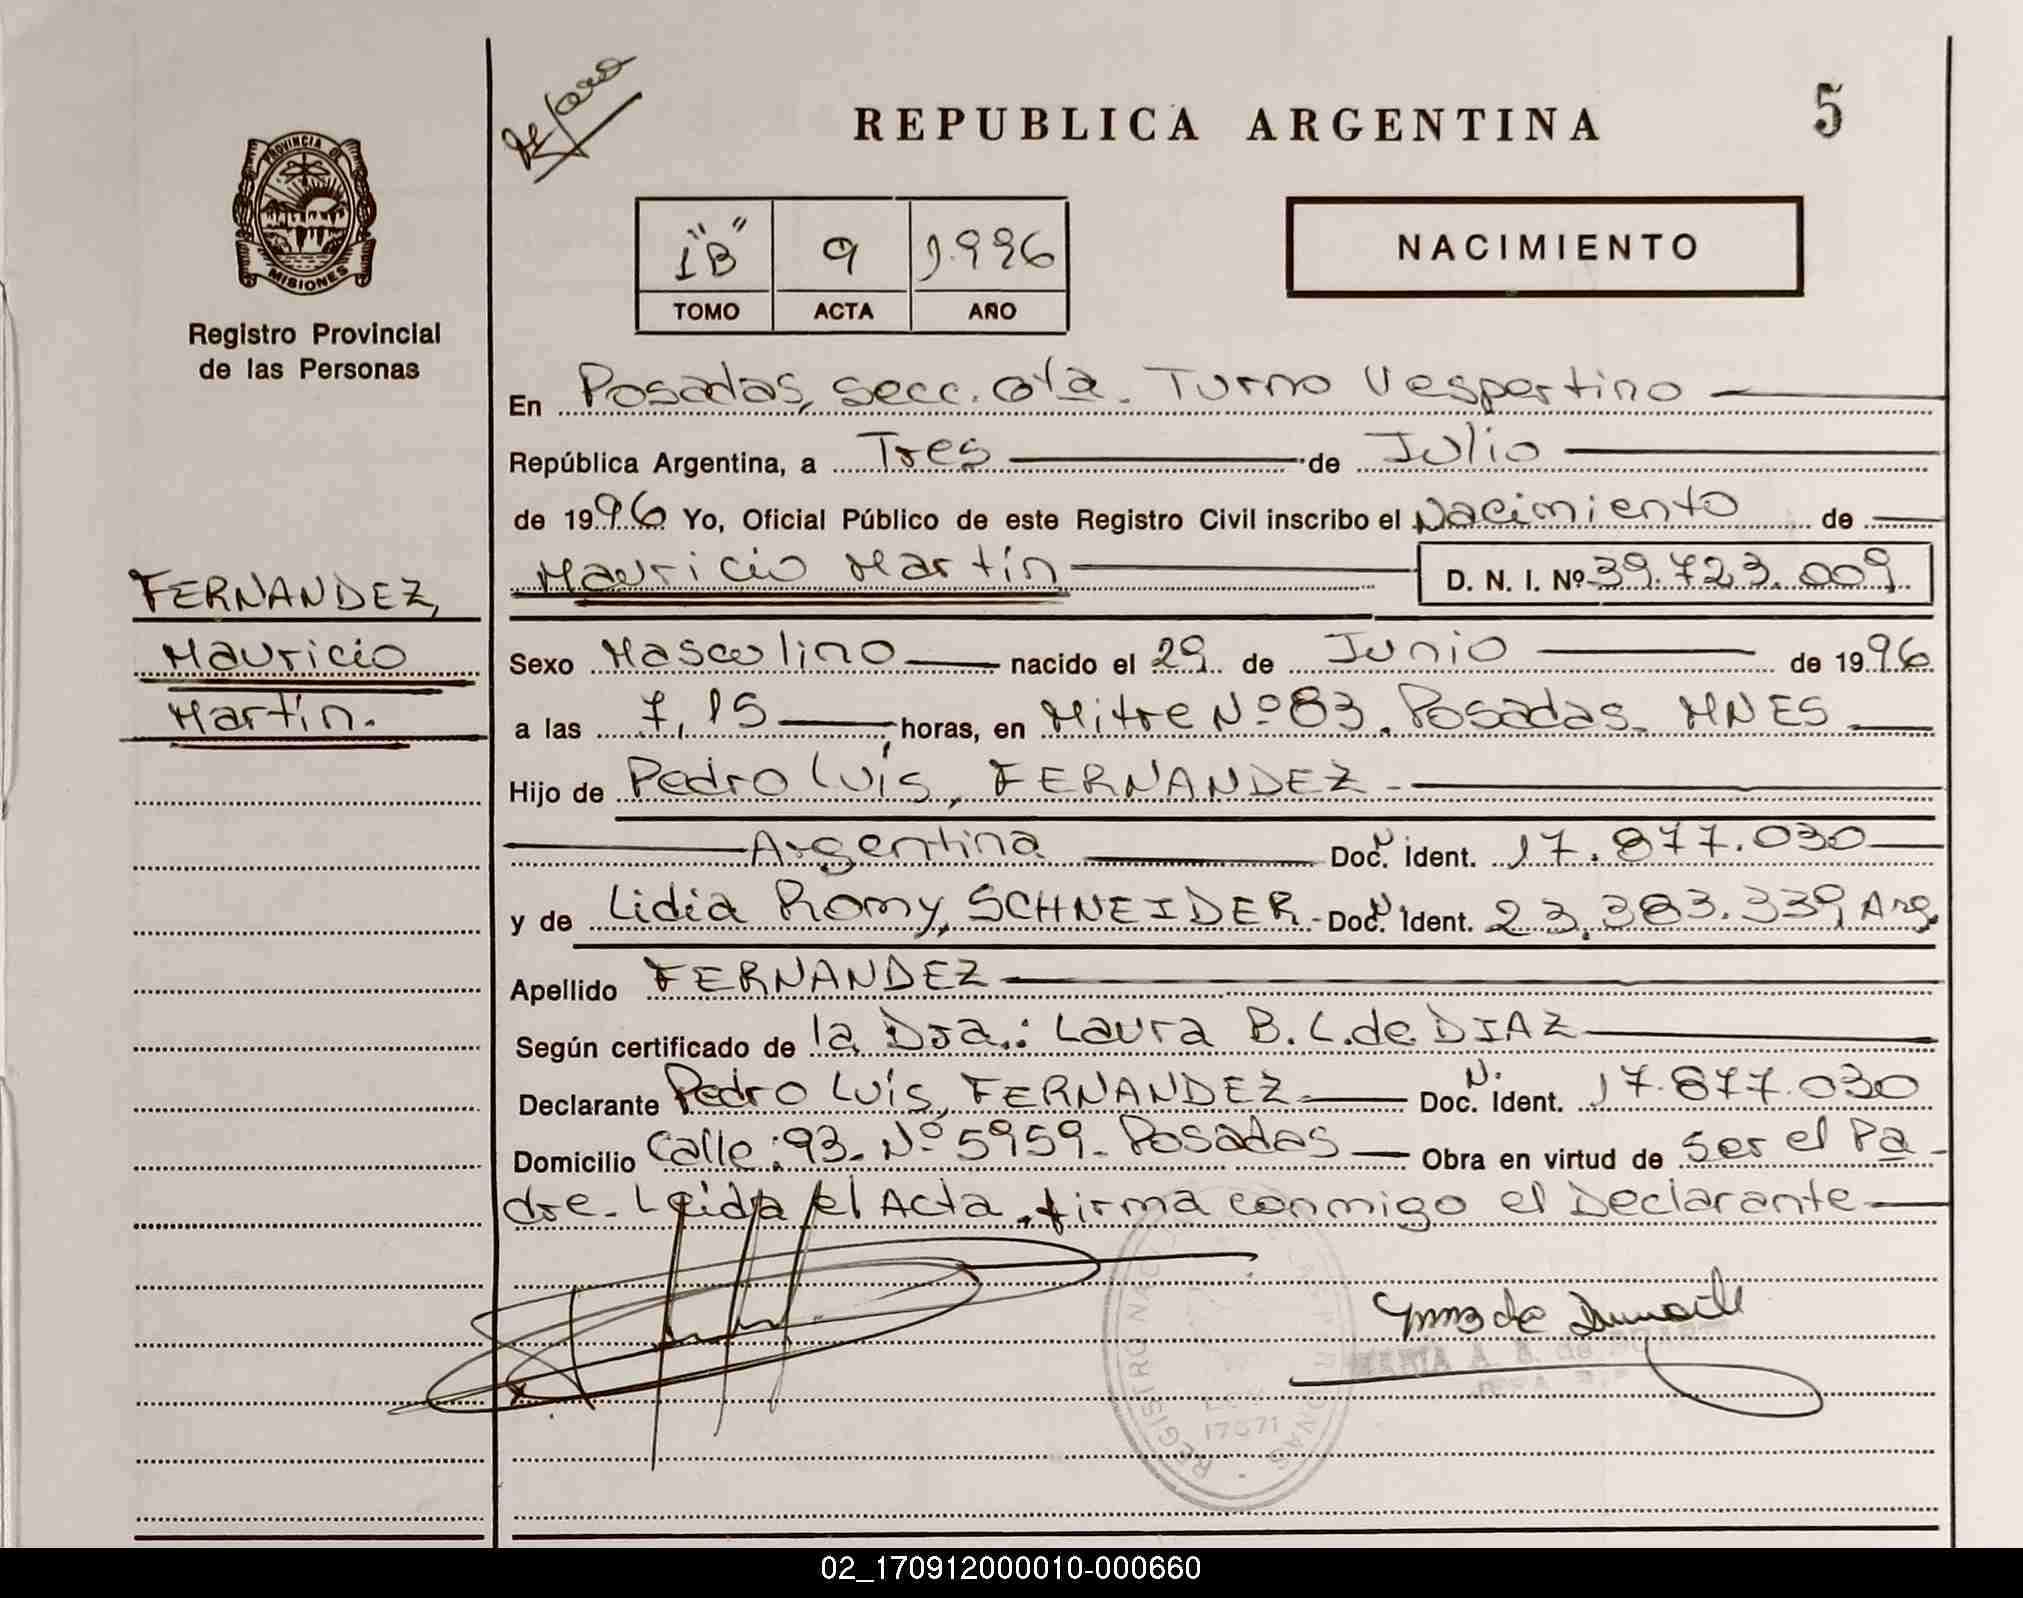 REPUBLICA ARGENTINA
5
PROVINCIA DE
MISIONES
Registro Provincial
de las Personas
1 "B" 9 1.996
TOMO ACTA AÑO
NACIMIENTO
En Posadas, Secc. 6ta. Turno Vespertino
República Argentina, a Tres de Julio
de 1996 Yo, Oficial Público de este Registro Civil inscribo el Nacimiento de
Mauricio Martín D. N. I. Nº 39.723.009
FERNANDEZ,
Mauricio
Martín.
Sexo Masculino nacido el 29 de Junio de 1996
a las 7,15 horas, en Mitre Nº 83. Posadas. MNES
Hijo de Pedro Luís, FERNANDEZ
Argentina Doc. Ident. 17.877.030
y de Lidia Romy, SCHNEIDER Doc. Ident. 23.383.339 Arg.
Apellido FERNANDEZ
Según certificado de la Dra.: Laura B. L. de DIAZ
Declarante Pedro Luís, FERNANDEZ Doc. Ident. 17.877.030
Domicilio Calle: 93. Nº 5959. Posadas Obra en virtud de Ser el Pa-
dre. Leída el Acta, firma conmigo el Declarante
17671
02_170912000010-000660